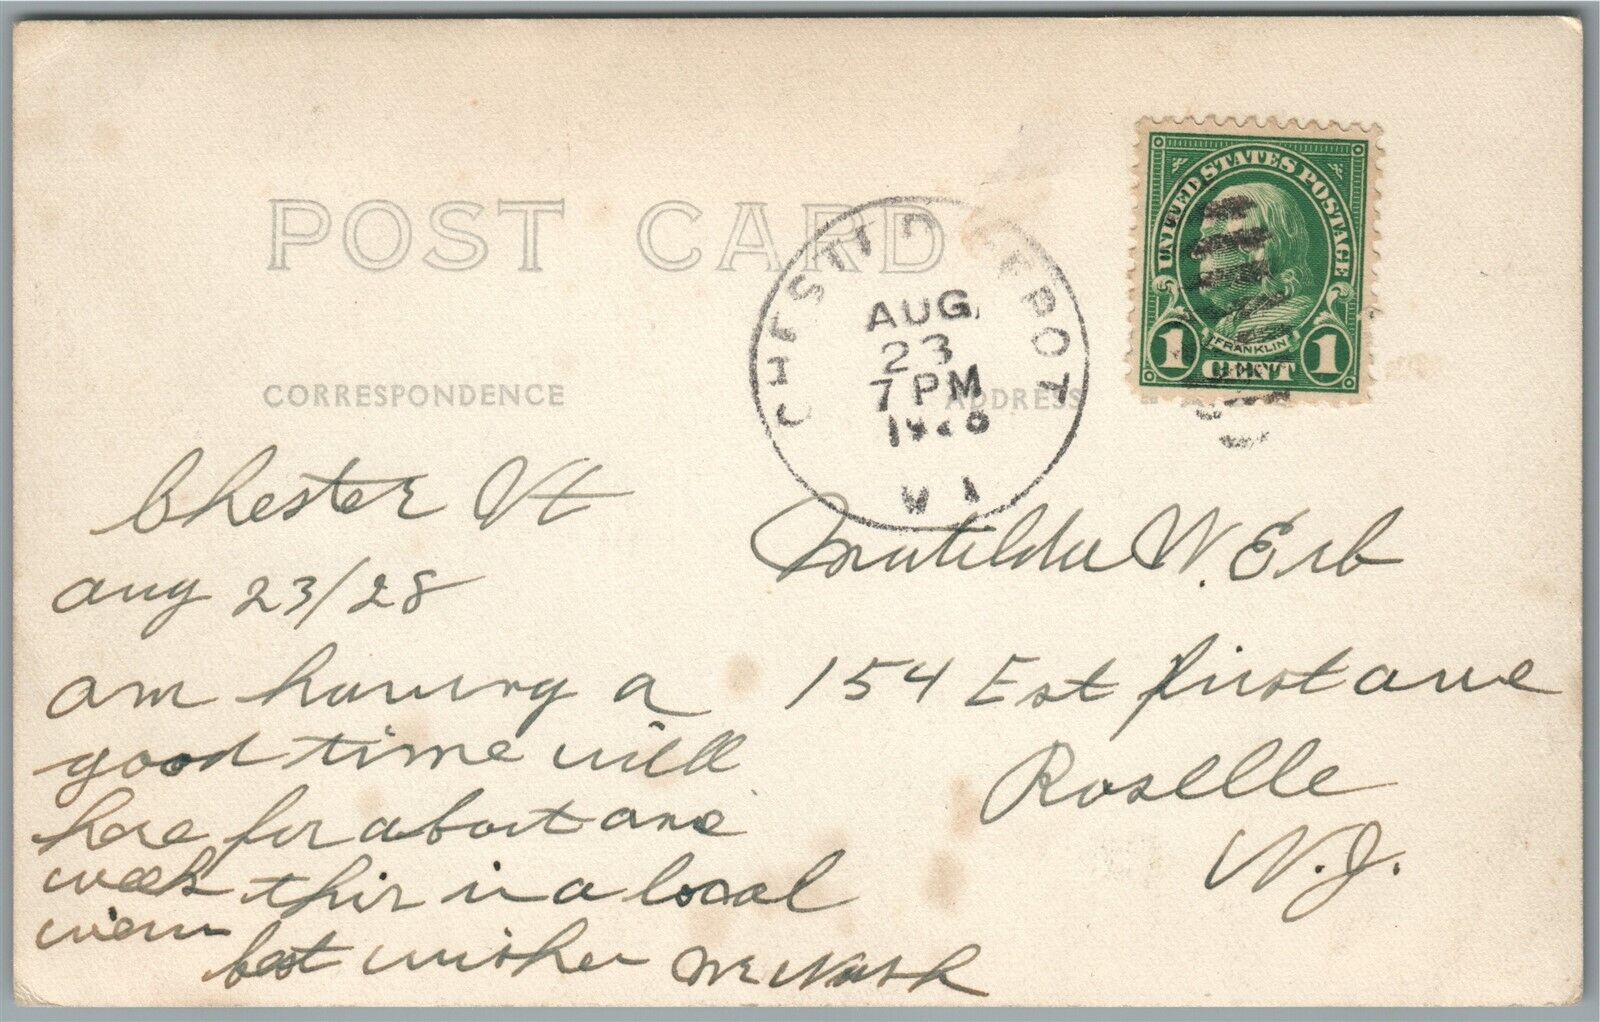 POST CARD
CORRESPONDENCE
ADDRESS
CHESTER DEPOT
AUG
23
7 PM
1928
UNITED STATES POSTAGE
FRANKLIN
1 CENT 1
Chester Vt
Aug 23/28
am having a
good time will
here for about one
week this is a local
view
best wishes
Matilda W. Erb
154 Est first ave
Roselle
N.J.